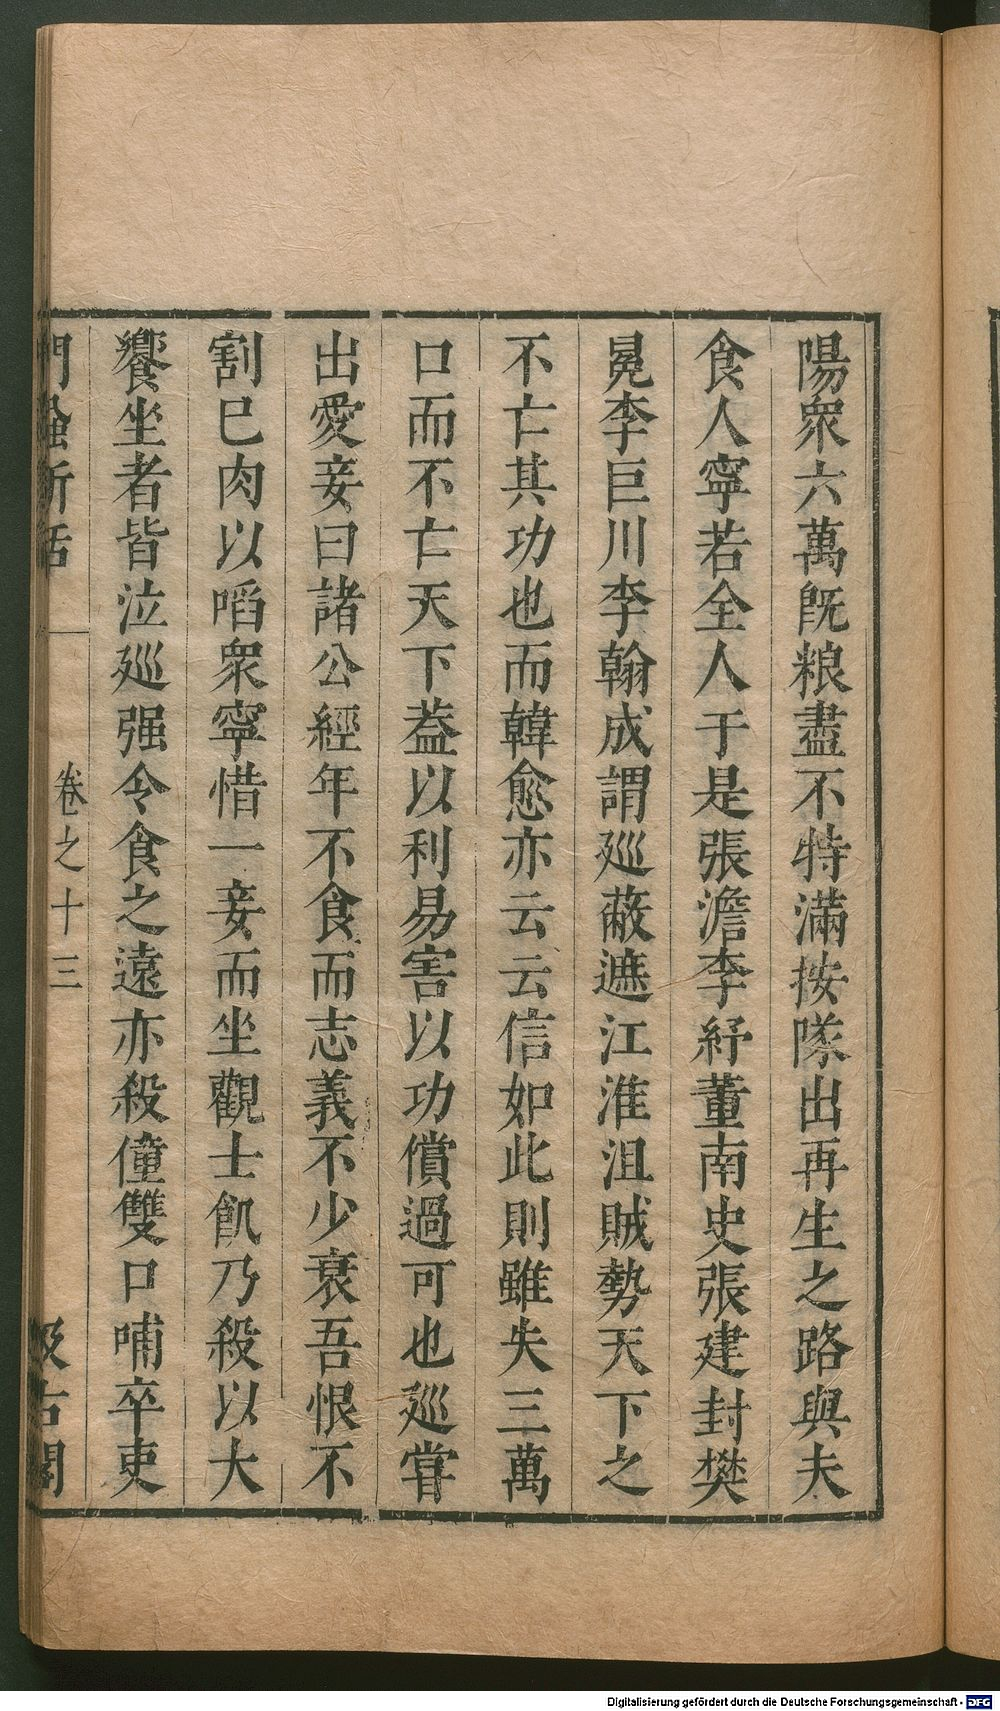 陽衆六萬旣粮盡不特滿按隊出再生之路與夫
食人寧若全人于是張澹李紓董南史張建封樊
晃李巨川李翰成謂廵蔽遮江淮沮賊勢天下之
不亡其功也而韓愈亦云云信如此則雖失三萬
口而不亡天下葢以利易害以功償過可也廵嘗
出愛妾曰諸公經年不食而志義不少衰吾恨不
割已肉以啗衆寧惜一妾而坐觀士飢乃殺以大
饗坐者皆泣廵强令食之遠亦殺僮雙口哺卒吏
門蝨新話
卷之十三
汲古閣
Digitalisierung gefördert durch die Deutsche Forschungsgemeinschaft - DFG